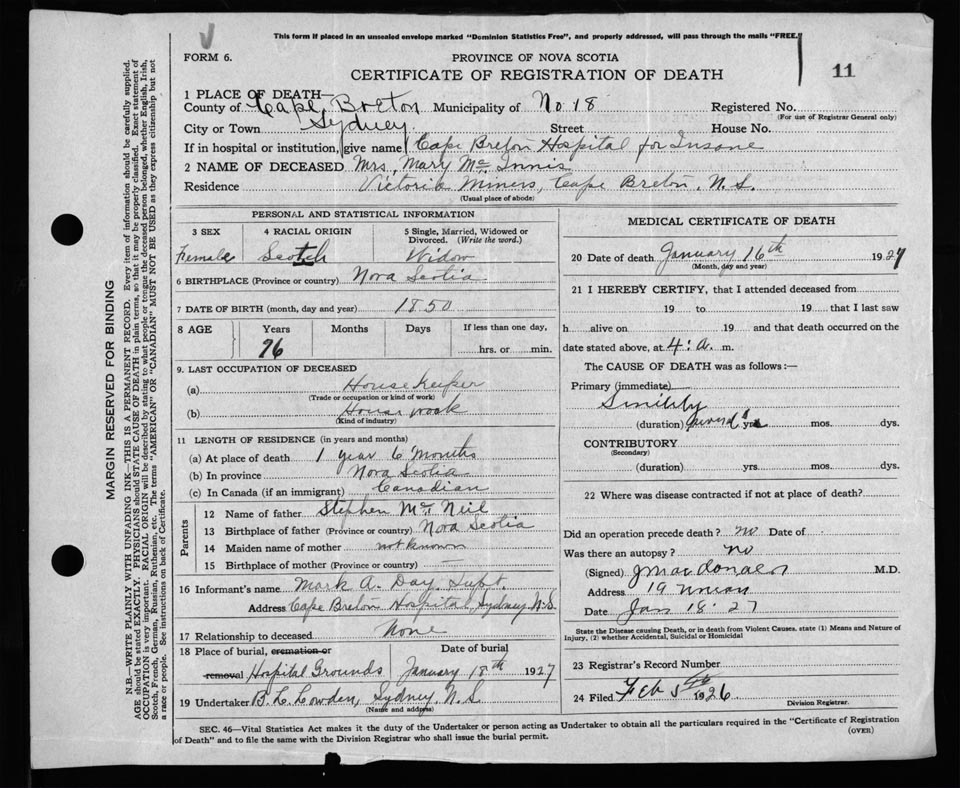 This form if placed in an unsealed envelope marked "Dominion Statistics Free", and properly addressed, will pass through the mails "FREE."
FORM 6.
PROVINCE OF NOVA SCOTIA
CERTIFICATE OF REGISTRATION OF DEATH
11
1 PLACE OF DEATH—
County of Cape Breton Municipality of No 18 Registered No.
(For use of Registrar General only)
City or Town Sydney Street House No.
If in hospital or institution, give name Cape Breton Hospital for Insane
2 NAME OF DECEASED Mrs, Mary Mc Innis
Residence Victoria Mines, Cape Breton, N. S.
(Usual place of abode)
MARGIN RESERVED FOR BINDING
N.B.—WRITE PLAINLY WITH UNFADING INK—THIS IS A PERMANENT RECORD. Every item of information should be carefully supplied.
AGE should be stated EXACTLY. PHYSICIANS should STATE CAUSE OF DEATH in plain terms, so that it may be properly classified. Exact statement of
OCCUPATION is very important. RACIAL ORIGIN will be described by stating to what people or tongue the deceased person belonged, whether English, Irish,
Scotch, French, German, Russian, Ruthenian, etc. The terms "AMERICAN" OR "CANADIAN" MUST NOT BE USED as they express citizenship but not
a race or people. See instructions on back of Certificate.
PERSONAL AND STATISTICAL INFORMATION
3 SEX
Female
4 RACIAL ORIGIN
Scotch
5 Single, Married, Widowed or
Divorced. (Write the word.)
Widow
6 BIRTHPLACE (Province or country) Nova Scotia
7 DATE OF BIRTH (month, day and year) 1850
8 AGE Years Months Days If less than one day,
76 hrs. or min.
9. LAST OCCUPATION OF DECEASED
(a) House Keeper
(Trade or occupation or kind of work)
(b) House work
(Kind of industry)
11 LENGTH OF RESIDENCE (in years and months)
(a) At place of death 1 year 6 months
(b) In province Nova Scotia
(c) In Canada (if an immigrant) Canadian
Parents
12 Name of father Stephen Mc Neil
13 Birthplace of father (Province or country) Nova Scotia
14 Maiden name of mother not known
15 Birthplace of mother (Province or country)
16 Informant's name Mark A. Day, Supt.
Address Cape Breton Hospital, Sydney N.S.
17 Relationship to deceased None
18 Place of burial, cremation or Date of burial
removal Hospital Grounds January 18th 1927
19 Undertaker B. L. Lowden, Sydney, N.S.
(Name and address)
MEDICAL CERTIFICATE OF DEATH
20 Date of death January 16th 1927
(Month, day and year)
21 I HEREBY CERTIFY, that I attended deceased from
19 to 19 that I last saw
h alive on 19 and that death occurred on the
date stated above, at 4: a. m.
The CAUSE OF DEATH was as follows:—
Primary (immediate)
Senility
(duration) yrs. mos. dys.
CONTRIBUTORY
(Secondary)
(duration) yrs. mos. dys.
22 Where was disease contracted if not at place of death?
Did an operation precede death? no Date of
Was there an autopsy? no
(Signed) J MacDonald M.D.
Address 19 Union
Date Jan 18 . 27
State the Disease causing Death, or in death from Violent Causes. state (1) Means and Nature of
Injury, (2) whether Accidental, Suicidal or Homicidal
23 Registrar's Record Number
24 Filed Feb 5th 1926
Division Registrar.
SEC. 46—Vital Statistics Act makes it the duty of the Undertaker or person acting as Undertaker to obtain all the particulars required in the "Certificate of Registration
of Death" and to file the same with the Division Registrar who shall issue the burial permit.
(OVER)